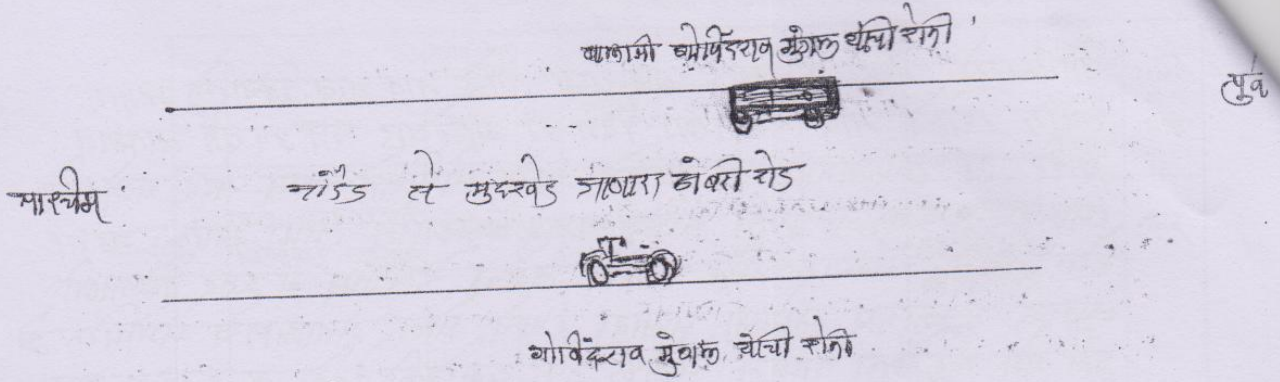 बालाजी गोविंदराव मुंगल यांची शेती
पुर्व
पाश्चीम
नांदेड ते मुदखेड जाणारा डांबरी रोड
गोविंदराव मुंगल यांची शेती